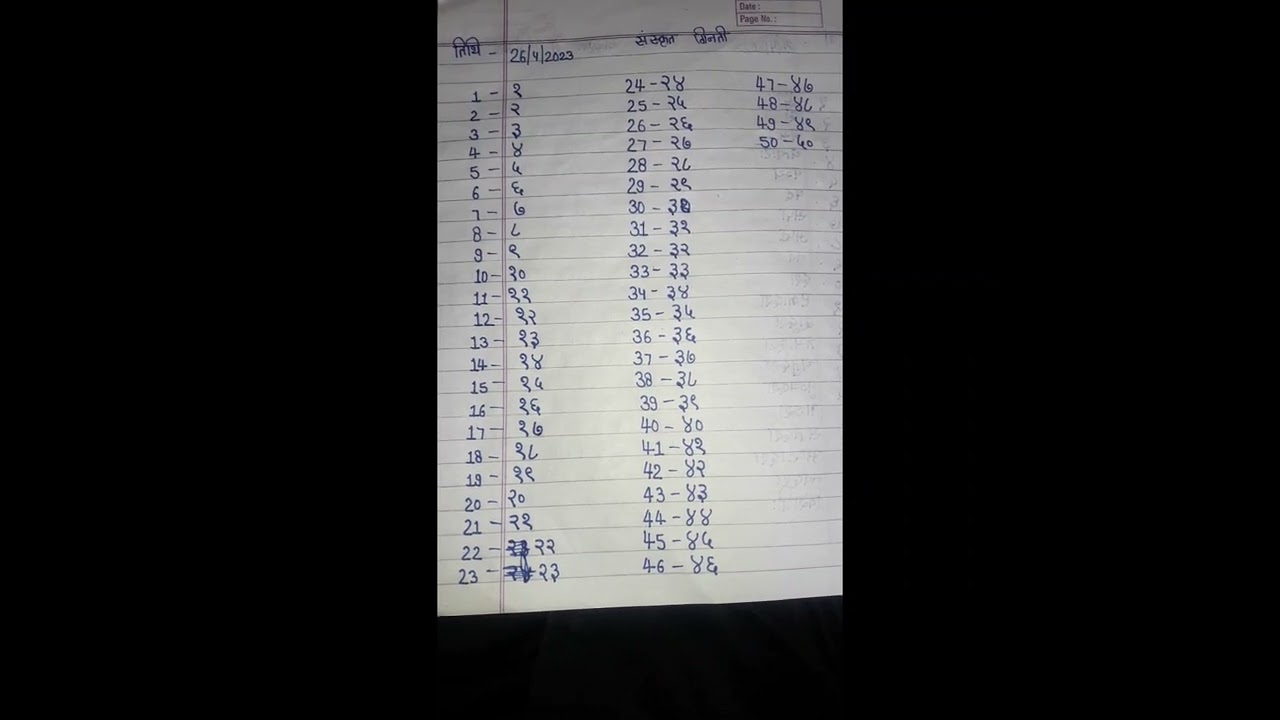 Date :
Page No. :
संस्कृत गिनती
तिथि - 26/4/2023
1 - १
2 - २
3 - ३
4 - ४
5 - ५
6 - ६
7 - ७
8 - ८
9 - ९
10 - १०
11 - ११
12 - १२
13 - १३
14 - १४
15 - १५
16 - १६
17 - १७
18 - १८
19 - १९
20 - २०
21 - २१
22 - २२
23 - २३
24 - २४
25 - २५
26 - २६
27 - २७
28 - २८
29 - २९
30 - ३०
31 - ३१
32 - ३२
33 - ३३
34 - ३४
35 - ३५
36 - ३६
37 - ३७
38 - ३८
39 - ३९
40 - ४०
41 - ४१
42 - ४२
43 - ४३
44 - ४४
45 - ४५
46 - ४६
47 - ४७
48 - ४८
49 - ४९
50 - ५०